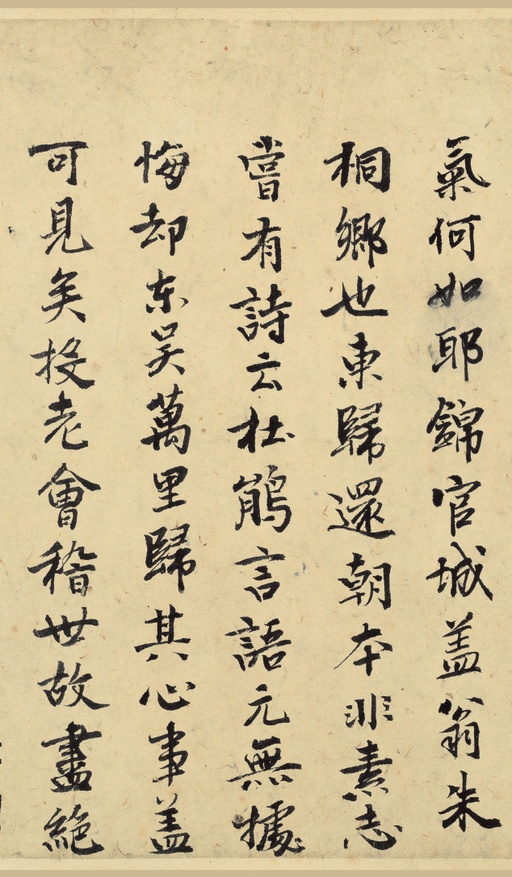 氣何如耶錦官城盖翁朱
桐鄉也東歸還朝本非素志
嘗有詩云杜鵑言語元無據
悔却東吴萬里歸其心事盖
可見矣投老會稽世故盡絶